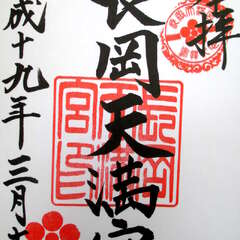 拝
長岡天満宮
長岡
天満
宮印
成十九年三月